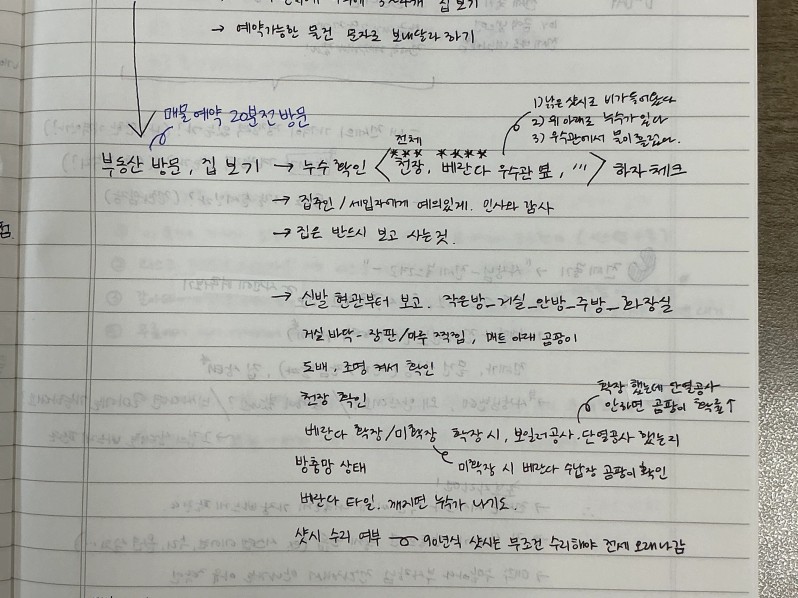 집 보기
→ 예약가능한 물건 문자로 보내달라 하기
매물 예약 20분전 방문
1) 낡은 샷시로 비가 들어온다
2) 위 아래로 누수가 있다
3) 우수관에서 물이 흘렀다.
전체
부동산 방문, 집 보기 → 누수확인 < ***천장, ****베란다 우수관 옆, ''' > 하자체크
→ 집주인/세입자에게 예의있게. 인사와 감사
→ 집은 반드시 보고 사는것.
→ 신발 현관부터 보고. 작은방_거실_안방_주방_화장실
거실 바닥 - 장판/마루 찍힘, 매트 아래 곰팡이
도배. 조명 켜서 확인
천장 확인
확장 했는데 단열공사
안하면 곰팡이 확률↑
베란다 확장/미확장 확장 시, 보일러공사. 단열공사 했는지
방충망 상태
미확장 시 베란다 수납장 곰팡이 확인
베란다 타일. 깨지면 누수가 나기도.
샷시 수리 여부 90년식 샷시는 무조건 수리해야 전세 오래나감